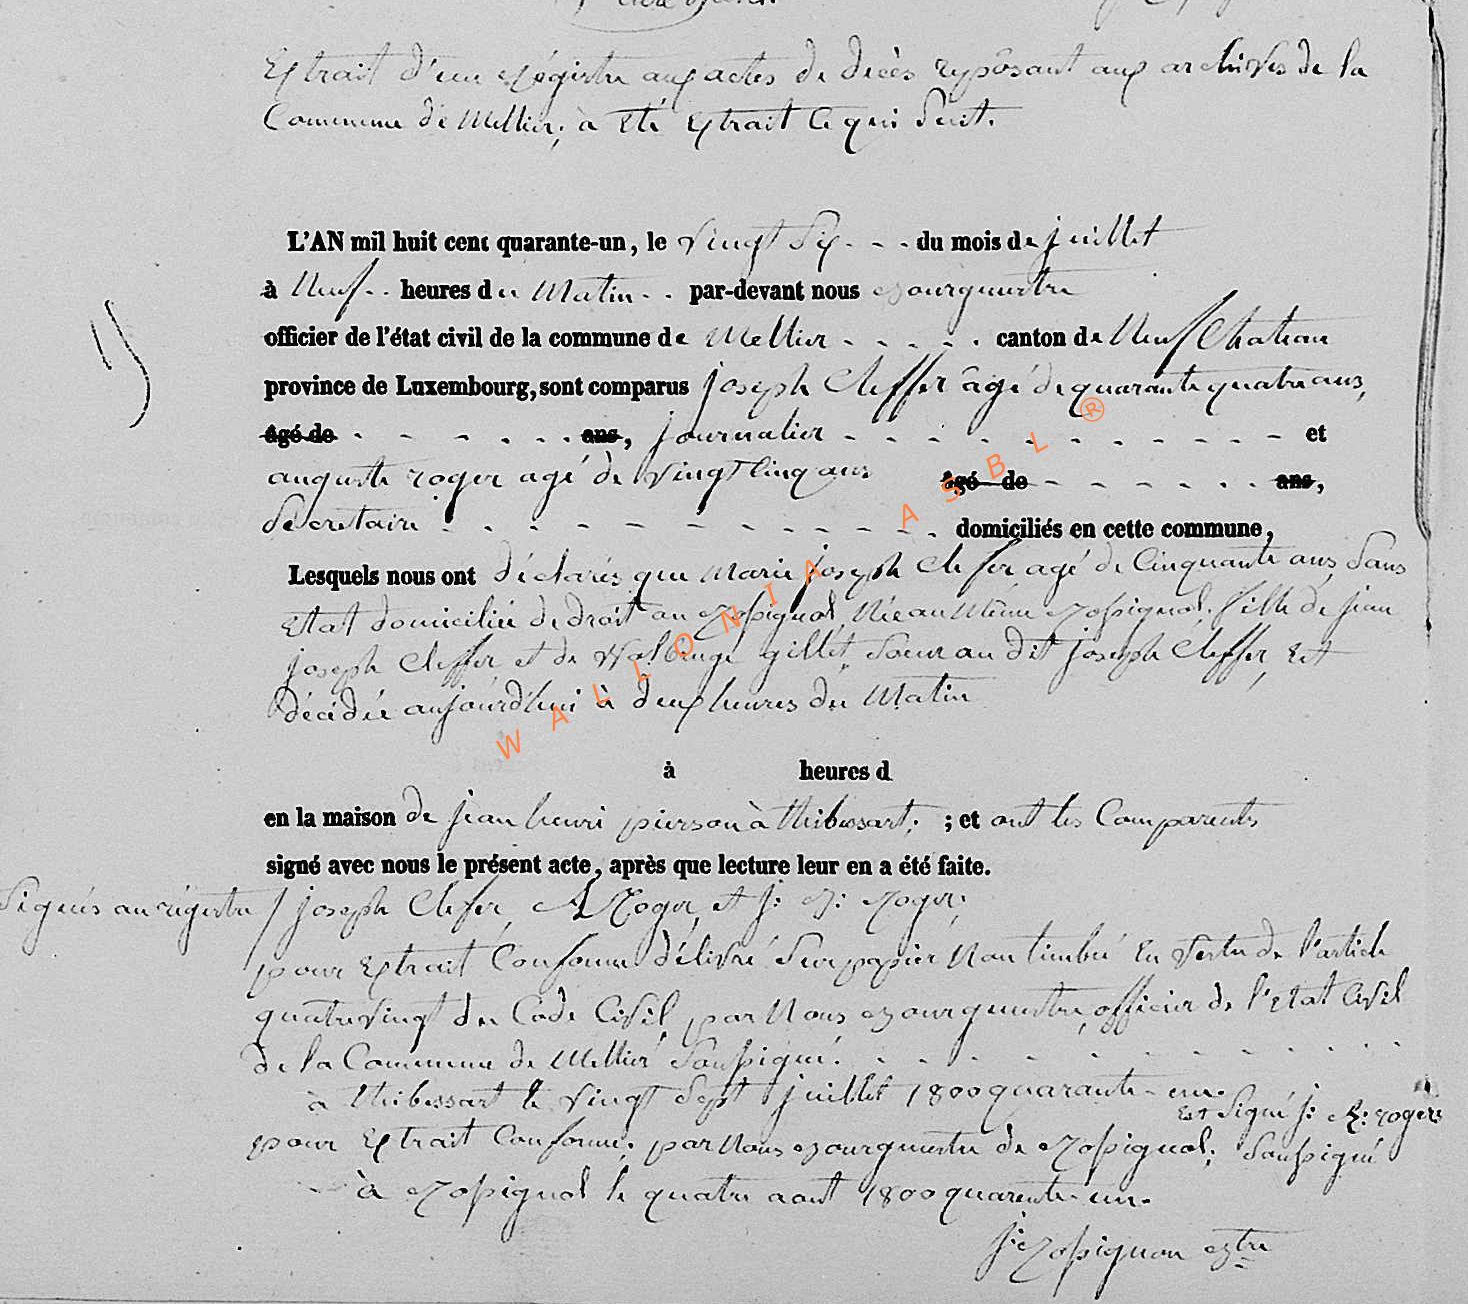 Extrait d'un Régistre aux actes de decès reposant aux archives de la
Commune de Mellier, à été Extrait Ce qui Suit.
L'AN mil huit cent quarante-un, le vingt Six - - - du mois de juillet
à Neuf - - heures du Matin - - par-devant nous Bourguestre
officier de l'état civil de la commune de Mellier - - - - - canton de Neufchateau
province de Luxembourg, sont comparus joseph Cleffer âgé de quarante quatre ans,
âgé de - - - - - - - ans, journalier - - - - - - - - - - - - et
auguste roger agé de vingt Cinq ans âgé de - - - - - - - ans,
Secretaire - - - - - - - - - - - - domiciliés en cette commune,
Lesquels nous ont déclarés que Marie joseph Clefer agé de Cinquante ans, Sans
Etat domiciliée de droit au Rossignol, Née au Même Rossignol. fille de jean
joseph Cleffer et de Walbruge gillet, Sœur au dit joseph Cleffer, Est
décédée aujourd'hui à deux heures du Matin
à heures d
en la maison de jean henri pierson à thibessart; ; et ont les Comparents
signé avec nous le présent acte, après que lecture leur en a été faite.
Signés au régistre / joseph Clefer, A Roger, et j: B: Roger;
pour Extrait Conforme délivré Sur papier Non timbré En vertu de l'article
quatre vingt du Code Civil, par Nous Bourguestre, officier de l'Etat Civil
de la Commune de Mellier Soussigné. - - - - - - - - - - -
à thibessart le vingt Sept juillet 1800 quarante-un.
Est Signé j: B: roger:
pour Extrait Conforme; par Nous Bourguestre de Rossignol; Soussigné
à Rossignol le quatre aout 1800 quarente-un.
j: Rossignon Bgtre
WALLONIA ASBL ®